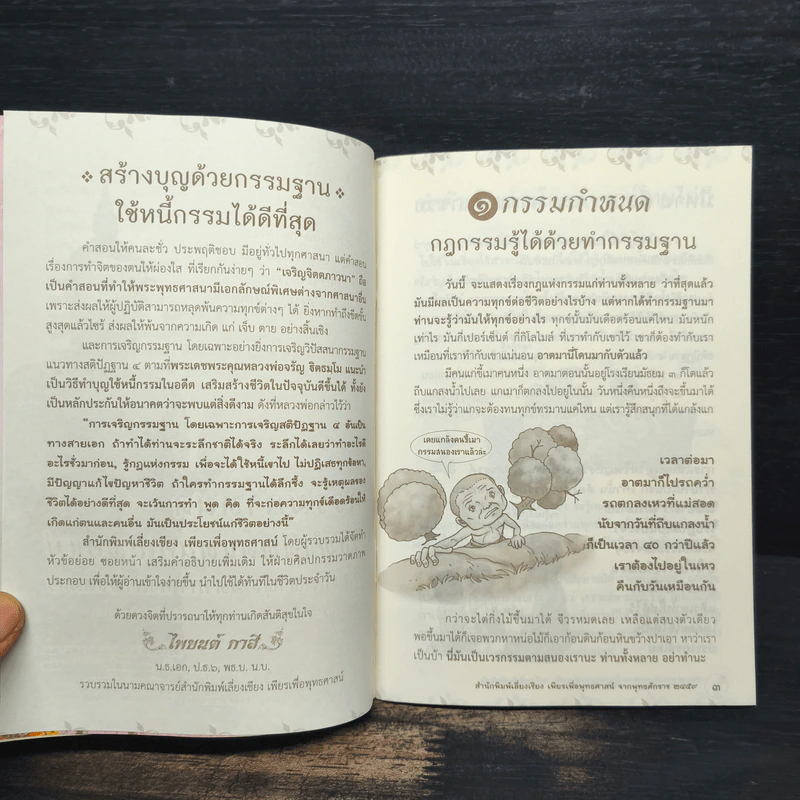 สร้างบุญด้วยกรรมฐาน
ใช้หนี้กรรมได้ดีที่สุด
คำสอนให้คนละชั่ว ประพฤติชอบ มีอยู่ทั่วไปทุกศาสนา แต่คำสอน
เรื่องการทำจิตของตนให้ผ่องใส ที่เรียกกันง่ายๆ ว่า “เจริญจิตตภาวนา” ถือ
เป็นคำสอนที่ทำให้พระพุทธศาสนามีเอกลักษณ์พิเศษต่างจากศาสนาอื่น
เพราะส่งผลให้ผู้ปฏิบัติสามารถหลุดพ้นความทุกข์ต่างๆ ได้ ยิ่งหากทำถึงขีดขั้น
สูงสุดแล้วไซร้ ส่งผลให้พ้นจากความเกิด แก่ เจ็บ ตาย อย่างสิ้นเชิง
และการเจริญกรรมฐาน โดยเฉพาะอย่างยิ่งการเจริญวิปัสสนากรรมฐาน
แนวทางสติปัฏฐาน ๔ ตามที่พระเดชพระคุณหลวงพ่อจรัญ ฐิตธมฺโม แนะนำ
เป็นวิธีทำบุญใช้หนี้กรรมในอดีต เสริมสร้างชีวิตในปัจจุบันดีขึ้นได้ ทั้งยัง
เป็นหลักประกันให้อนาคตว่าจะพบแต่สิ่งดีงาม ดังที่หลวงพ่อกล่าวไว้ว่า
“การเจริญกรรมฐาน โดยเฉพาะการเจริญสติปัฏฐาน ๔ อันเป็น
ทางสายเอก ถ้าทำได้ท่านจะระลึกชาติได้จริง ระลึกได้เลยว่าทำอะไรดี
อะไรชั่วมาก่อน, รู้กฎแห่งกรรม เพื่อจะได้ใช้หนี้เขาไป ไม่ปฏิเสธทุกข้อหา,
มีปัญญาแก้ไขปัญหาชีวิต ถ้าใครทำกรรมฐานได้ลึกซึ้ง จะรู้เหตุผลของ
ชีวิตได้อย่างดีที่สุด จะเว้นการทำ พูด คิด ที่จะก่อความทุกข์เดือดร้อนให้
เกิดแก่ตนและคนอื่น มันเป็นประโยชน์แก่ชีวิตอย่างนี้”
สำนักพิมพ์เลี่ยงเชียง เพียรเพื่อพุทธศาสน์ โดยผู้รวบรวมได้จัดทำ
หัวข้อย่อย ซอยหน้า เสริมคำอธิบายเพิ่มเติม ให้ฝ่ายศิลปกรรมวาดภาพ
ประกอบ เพื่อให้ผู้อ่านเข้าใจง่ายขึ้น นำไปใช้ได้ทันทีในชีวิตประจำวัน
ด้วยดวงจิตที่ปรารถนาให้ทุกท่านเกิดสันติสุขในใจ
ไพยนต์ กาสี
น.ธ.เอก, ป.ธ.๖, พธ.บ. น.บ.
รวบรวมในนามคณาจารย์สำนักพิมพ์เลี่ยงเชียง เพียรเพื่อพุทธศาสน์
๑ กรรมกำหนด
กฎกรรมรู้ได้ด้วยทำกรรมฐาน
วันนี้ จะแสดงเรื่องกฎแห่งกรรมแก่ท่านทั้งหลาย ว่าที่สุดแล้ว
มันมีผลเป็นความทุกข์ต่อชีวิตอย่างไรบ้าง แต่หากได้ทำกรรมฐานมา
ท่านจะรู้ว่ามันให้ทุกข์อย่างไร ทุกข์นั้นมันเดือดร้อนแค่ไหน มันหนัก
เท่าไร มันกี่เปอร์เซ็นต์ กี่กิโลไมล์ ที่เราทำกับเขาไว้ เขาก็ต้องทำกับเรา
เหมือนที่เราทำกับเขาแน่นอน อาตมานี่โดนมากับตัวแล้ว
มีคนแก่ขี้เมาคนหนึ่ง อาตมาตอนนั้นอยู่โรงเรียนมัธยม ๓ ก็โดแล้ว
ถีบแกลงน้ำไปเลย แกเมาก็ตกลงไปอยู่ในนั้น วันหนึ่งคืนหนึ่งถึงจะขึ้นมาได้
ซึ่งเราไม่รู้ว่าแกจะต้องทนทุกข์ทรมานแค่ไหน แต่เรารู้สึกสนุกที่ได้แกล้งแก
เคยแกล้งคนขี้เมา
กรรมสนองเราแล้วล่ะ
เวลาต่อมา
อาตมาก็ไปรถคว่ำ
รถตกลงเหวที่แม่สอด
นับจากวันที่ถีบแกลงน้ำ
ก็เป็นเวลา ๔๐ กว่าปีแล้ว
เราต้องไปอยู่ในเหว
คืนกับวันเหมือนกัน
กว่าจะไต่กิ่งไม้ขึ้นมาได้ จีวรหมดเลย เหลือแต่สบงตัวเดียว
พอขึ้นมาได้ก็เจอพวกหาหน่อไม้ก็เอาก้อนดินก้อนหินขว้างปาเอา หาว่าเรา
เป็นบ้า นี่มันเป็นเวรกรรมตามสนองเรานะ ท่านทั้งหลาย อย่าทำนะ
สำนักพิมพ์เลี่ยงเชียง เพียรเพื่อพุทธศาสน์ จากพุทธศักราช ๒๔๕๙ ๓